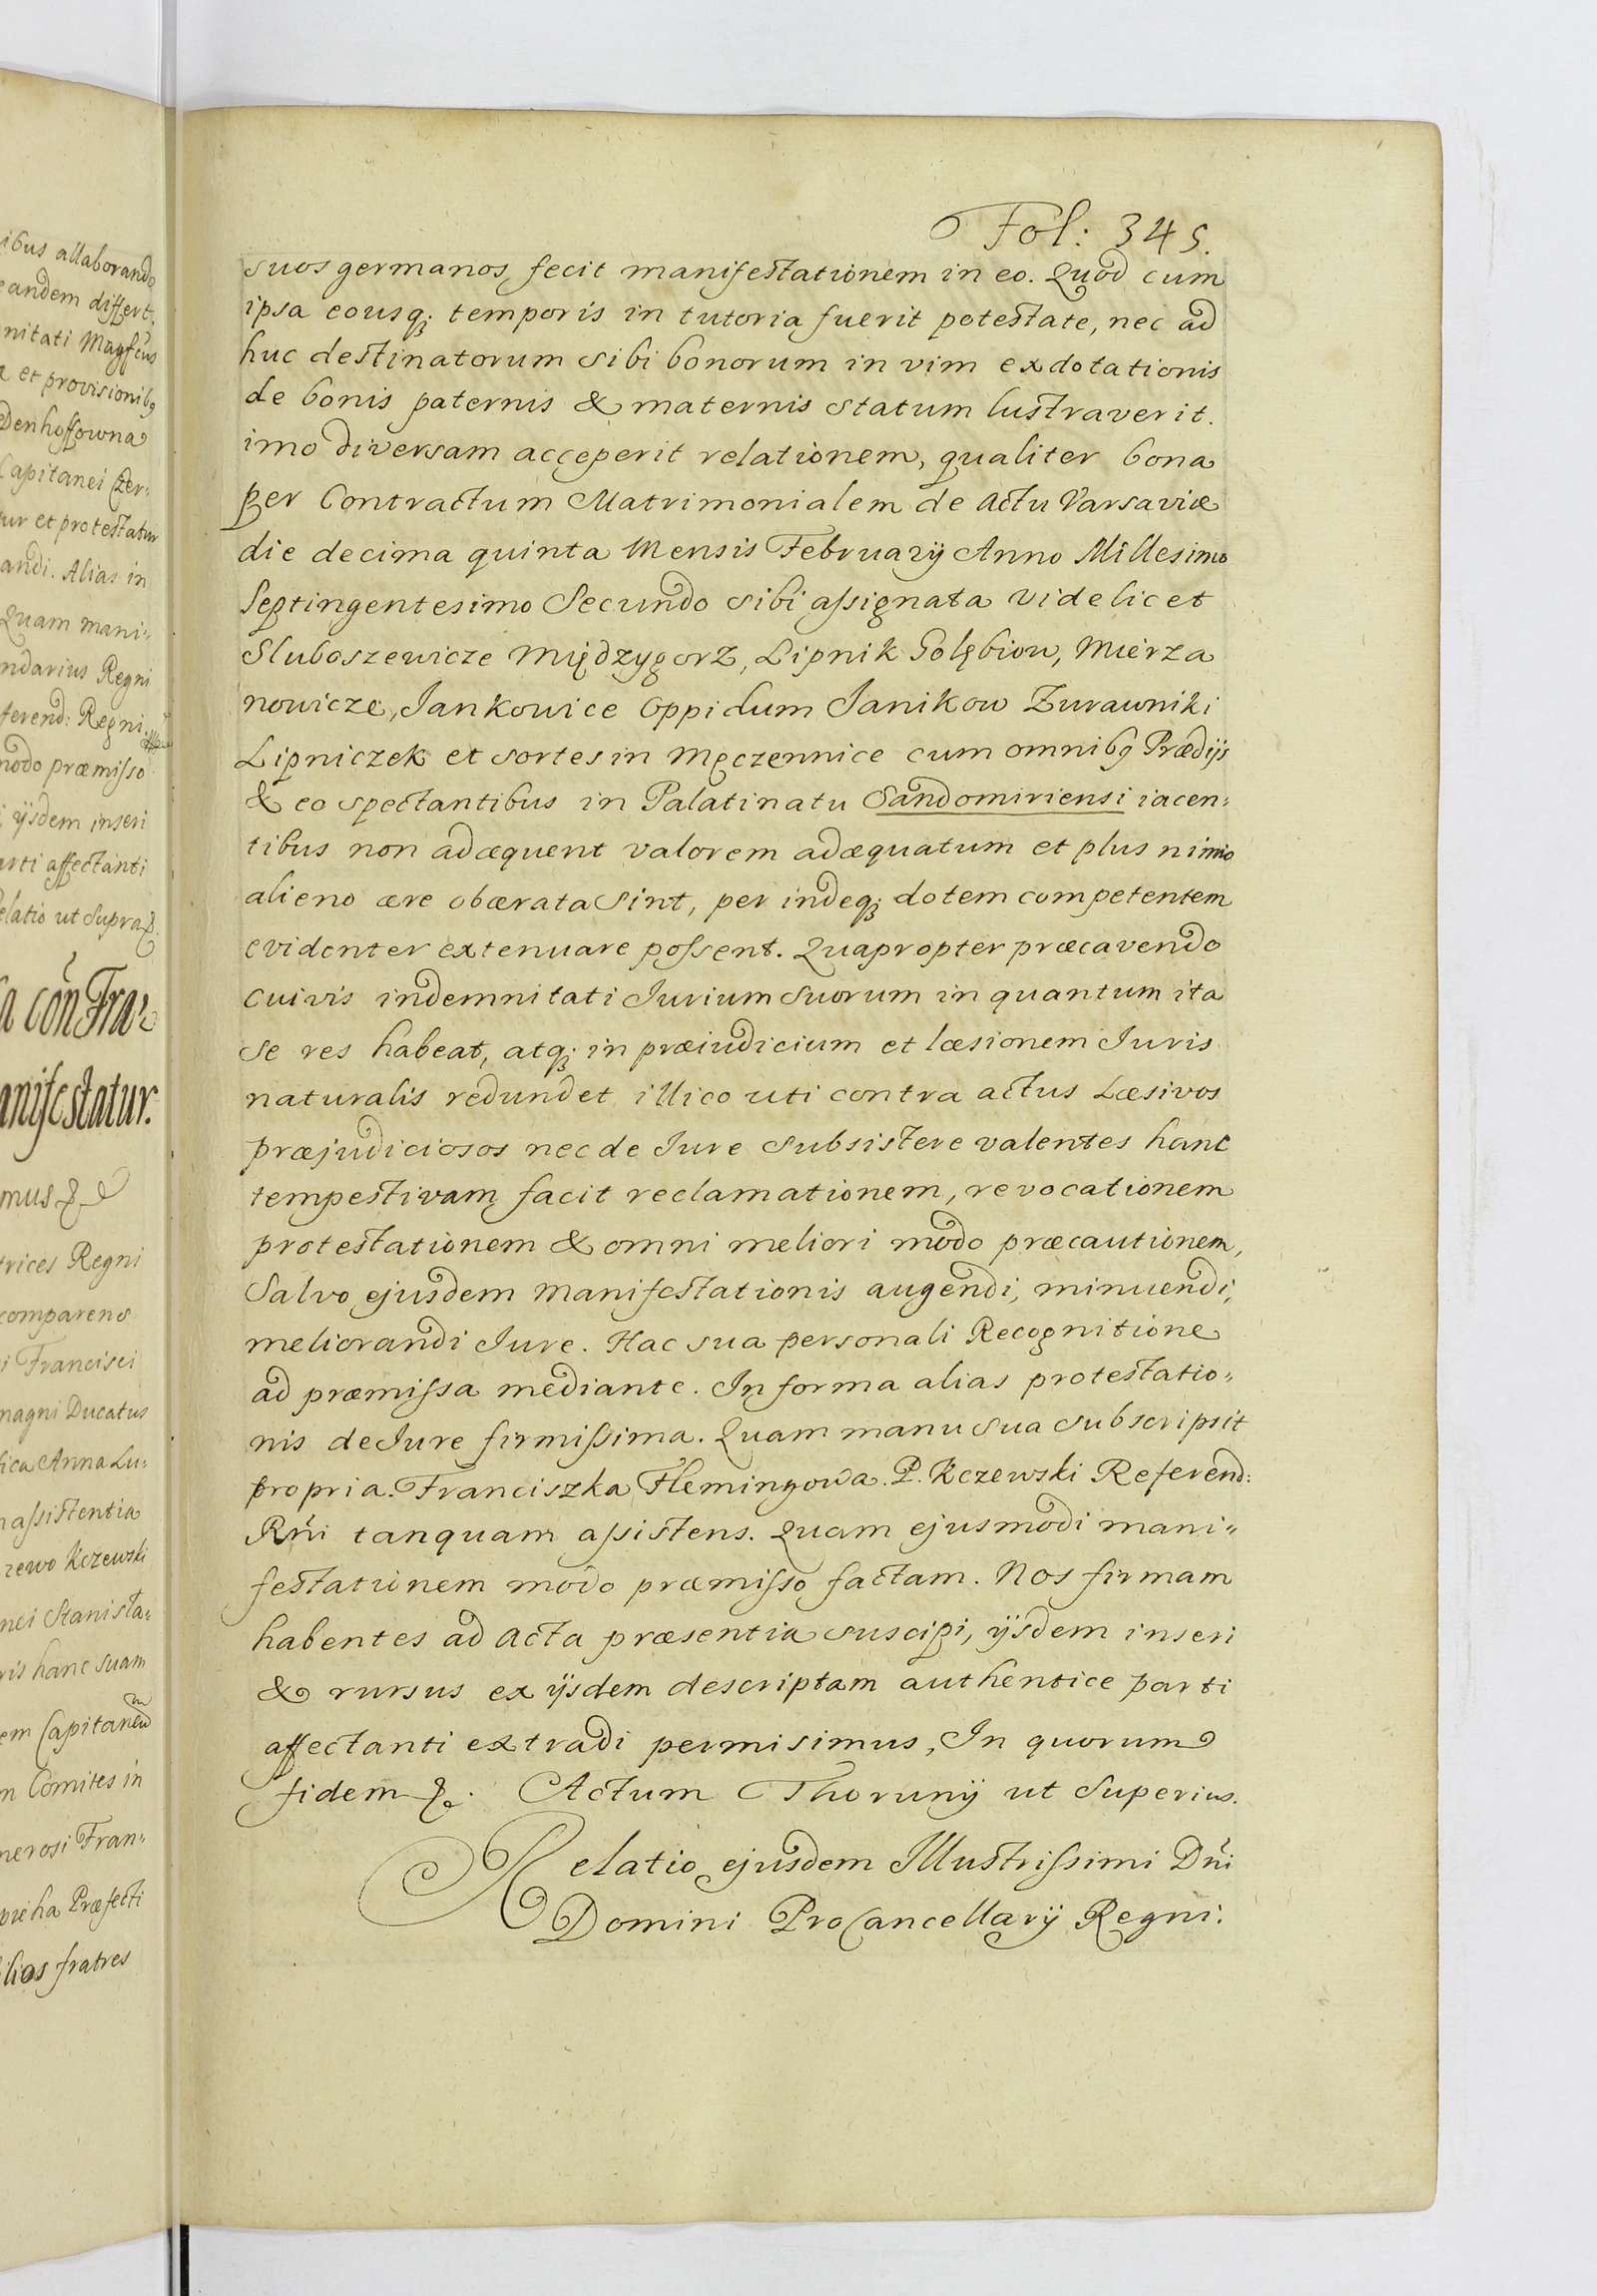 ibus allaborando
eandem differt.
nitati Magfcus
a et provisionibq
Denhoffowna
Capitanei Czer-
tur et protestatur
andi. Alias in
Quam mani-
ndarius Regni
ferend: Regni
modo præmisso
ijsdem inseri
arti affectanti
elatio ut supra
a con Fra
anifestatur.
mus &
trices Regni
comparens
i Francisci
magni Ducatus
fica Anna Lu-
assistentia
zewo Kczewski
nei Stanisla-
ris hanc suam
em Capitaneum
m Comites in
nerosi Fran-
pieha Præfecti
lios fratres
Fol: 345.
suos germanos fecit manifestationem in eo. Quod cum
ipsa eousq; temporis in tutoria fuerit potestate, nec ad
huc destinatorum sibi bonorum in vim exdotationis
de bonis paternis & maternis statum lustraverit.
imo diversam acceperit relationem, qualiter bona
per Contractum Matrimonialem de Actu Varsaviæ
die decima quinta Mensis Februarij Anno Millesimo
Septingentesimo Secundo sibi assignata videlicet
Sluboszewicze Międzygorz, Lipnik Golębiow, Mierza
nowicze, Jankowice Oppidum Janikow Zurawniki
Lipniczek et sortes in Męczennice cum omnibq Prædijs
& eo spectantibus in Palatinatu Sandomiriensi iacen-
tibus non adæquent valorem adæquatum et plus nimio
alieno ære obærata sint, per indeq; dotem competentem
evidenter extenuare possent. Quapropter præcavendo
cuivis indemnitati Jurium suorum in quantum ita
se res habeat, atq; in præiudicium et læsionem Juris
naturalis redundet illico uti contra actus Læsivos
præjudiciosos nec de Jure subsistere valentes hanc
tempestivam facit reclamationem, revocationem
protestationem & omni meliori modo præcautionem,
Salvo ejusdem Manifestationis augendi, minuendi,
meliorandi Jure. Hac sua personali Recognitione
ad præmissa mediante. In forma alias protestatio-
nis de Jure firmissima. Quam manu sua subscripsit
propria. Franciszka Flemingowa. P. Kczewski Referend:
Rni tanquam assistens. Quam ejusmodi mani-
festationem modo præmisso factam. Nos firmam
habentes ad Acta præsentia suscipi, ijsdem inseri
& rursus ex ijsdem descriptam authentice parti
affectanti extradi permisimus, In quorum
fidem &. Actum Thorunij ut Superius.
Relatio ejusdem Illustrissimi Dni
Domini ProCancellarij Regni.